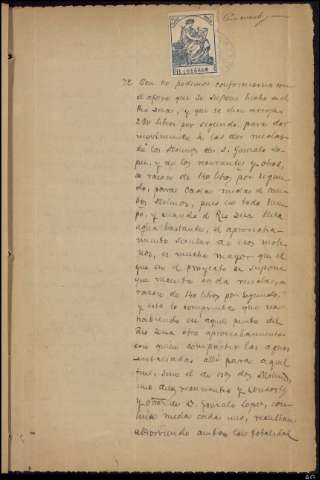 7ª Que no podemos conformarnos con
el aforo que se supone hecho en el
Rio Sena, y que se dice arroja,
280 litros por segundo, para dar
movimiento á las dos muelas
de los Molinos de D. Gonzalo Lo-
pez, y de los recurrentes y otros,
á razon de 140 litros por segun-
do, para cada muela de am-
bos Molinos, pues en todo tiem-
po, y cuando el Rio Sena lleva
agua bastante, el aprovecha-
miento secular de esos moli-
nos, es mucho mayor que el
que en el proyecto se supone
que necesita cada muela, á
razon de 140 litros por segundo,
y esto lo comprueba que no
habiendo en aquel punto del
Rio Sena otro aprovechamiento
con quien compartir las aguas
embalsadas allí para aquel
fin, sino el de esos dos Molinos,
uno de los recurrentes y consorte
y otro de D. Gonzalo Lopez, con
una muela cada uno, resultan
absorviendo ambos la totalidad